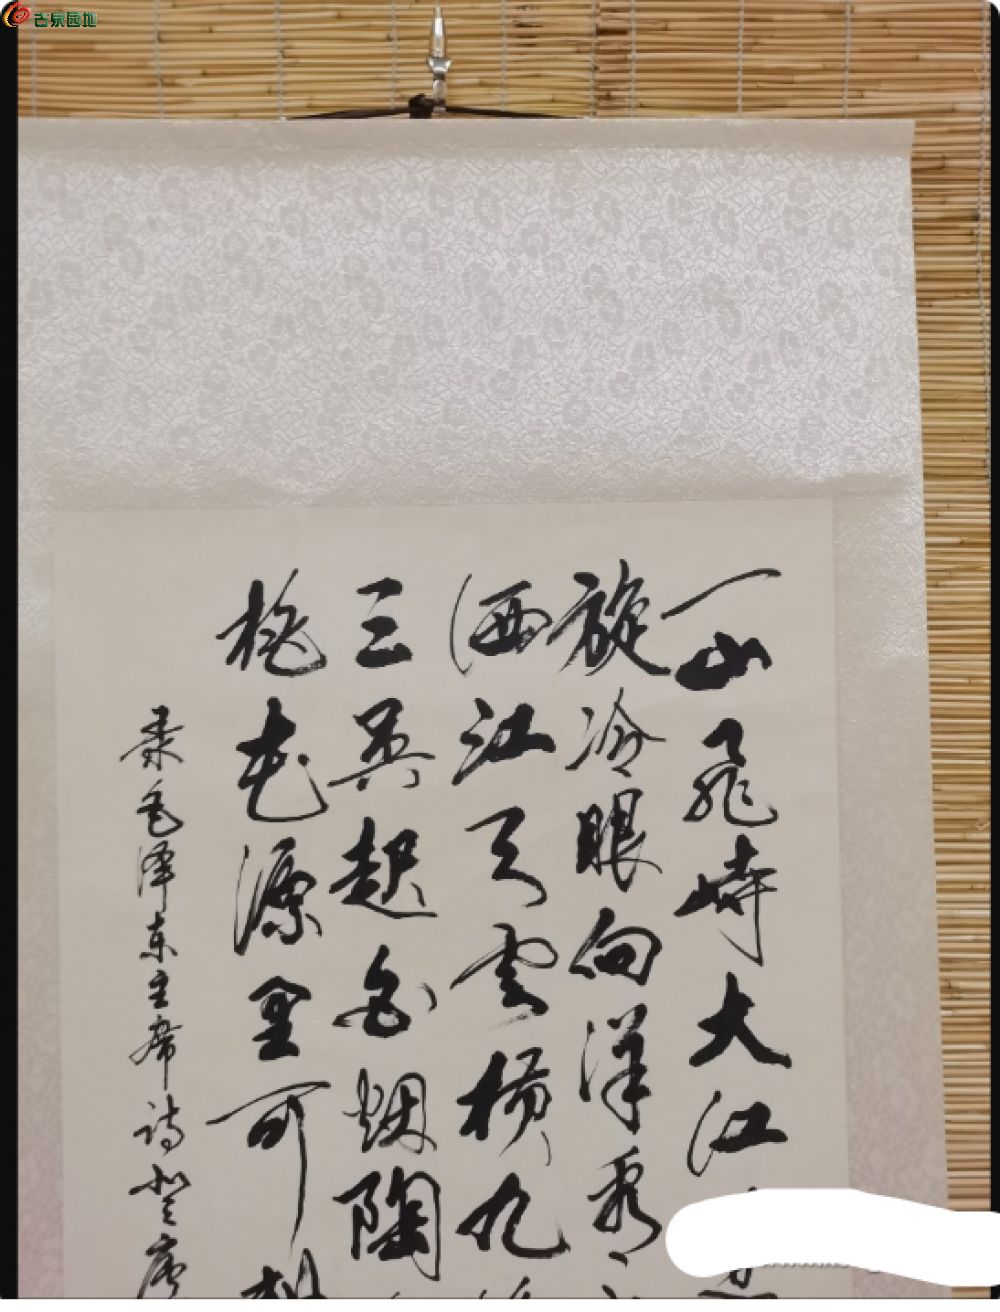 古泉园地
一山飛峙大江
旋冷眼向洋看
洒江天雲横九
三吴起白烟陶
桃花源里可
录毛泽东主席诗登庐